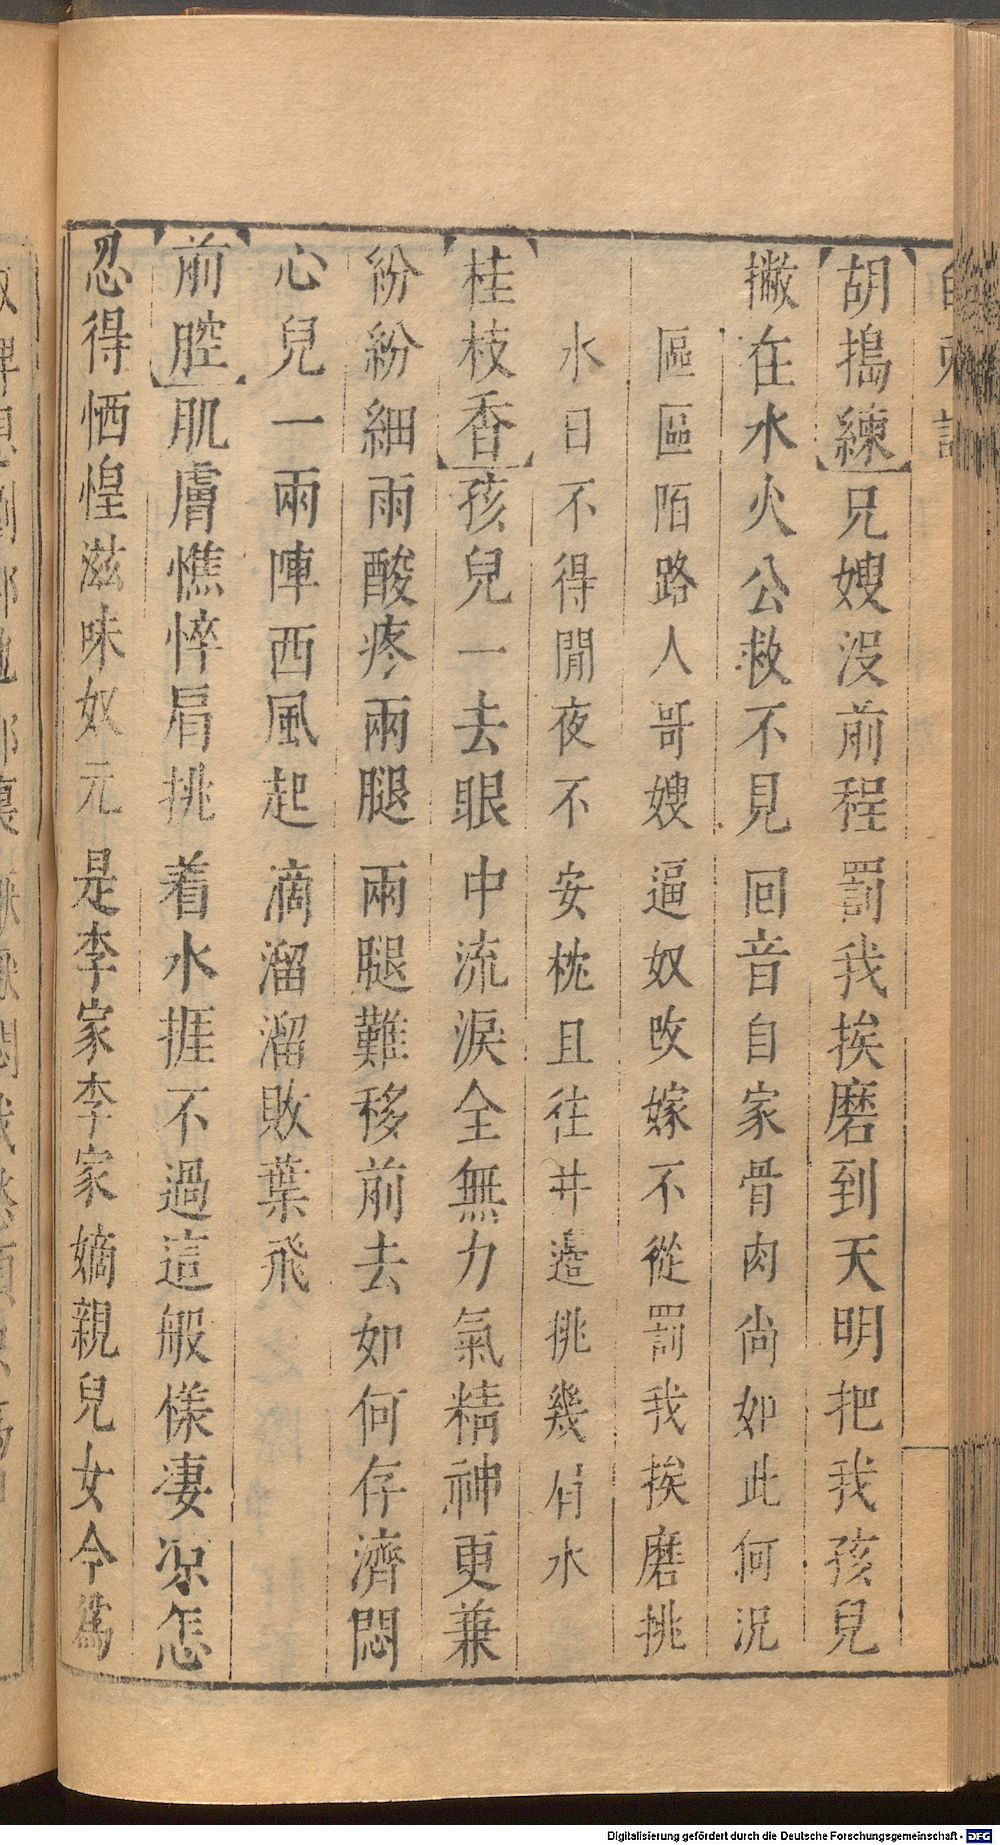 白兎記
【胡搗練】兄嫂沒前程罰我挨磨到天明把我孩兒
撇在水火公救不見回音自家骨肉尚如此何況
區區陌路人哥嫂逼奴改嫁不從罰我挨磨挑
水日不得閒夜不安枕且往井邉挑幾肩水
【桂枝香】孩兒一去眼中流淚全無力氣精神更兼
紛紛細雨酸疼兩腿兩腿難移前去如何存濟悶
心兒一兩陣西風起滴溜溜敗葉飛
【前腔】肌膚憔悴肩挑着水捱不過這般樣淒凉怎
忍得恓惶滋味奴元是李家李家嫡親兒女今爲
Digitalisierung gefördert durch die Deutsche Forschungsgemeinschaft - DFG